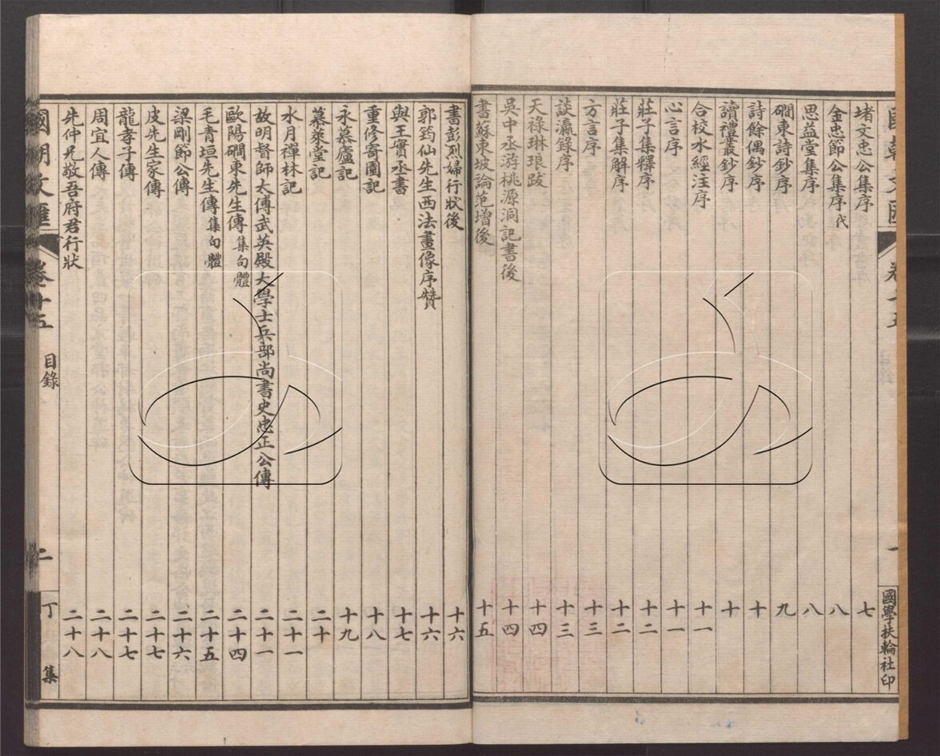 堵文忠公集序 七
金忠節公集序代 八
思益堂集序 八
磵東詩鈔序 九
詩餘偶鈔序 十
讀禮叢鈔序 十
合校水經注序 十一
心言序 十一
莊子集釋序 十二
莊子集解序 十二
方言序 十三
談瀛錄序 十三
天祿琳琅跋 十四
吳中丞游桃源洞記書後 十四
書蘇東坡論范增後 十五
國學扶輪社印
書彭烈婦行狀後 十六
郭筠仙先生西法畫像序贊 十六
與王實丞書 十七
重修寄園記 十八
永慕廬記 十九
慕萊堂記 二十
水月禪林記 二十一
故明督師太傅武英殿大學士兵部尚書史忠正公傳 二十一
歐陽磵東先生傳集句體 二十四
毛青垣先生傳集句體 二十五
梁剛節公傳 二十六
皮先生家傳 二十七
龍孝子傳 二十七
周宜人傳 二十八
先仲兄敬吾府君行狀 二十八
國朝文匯 卷十五 目錄 二 丁集